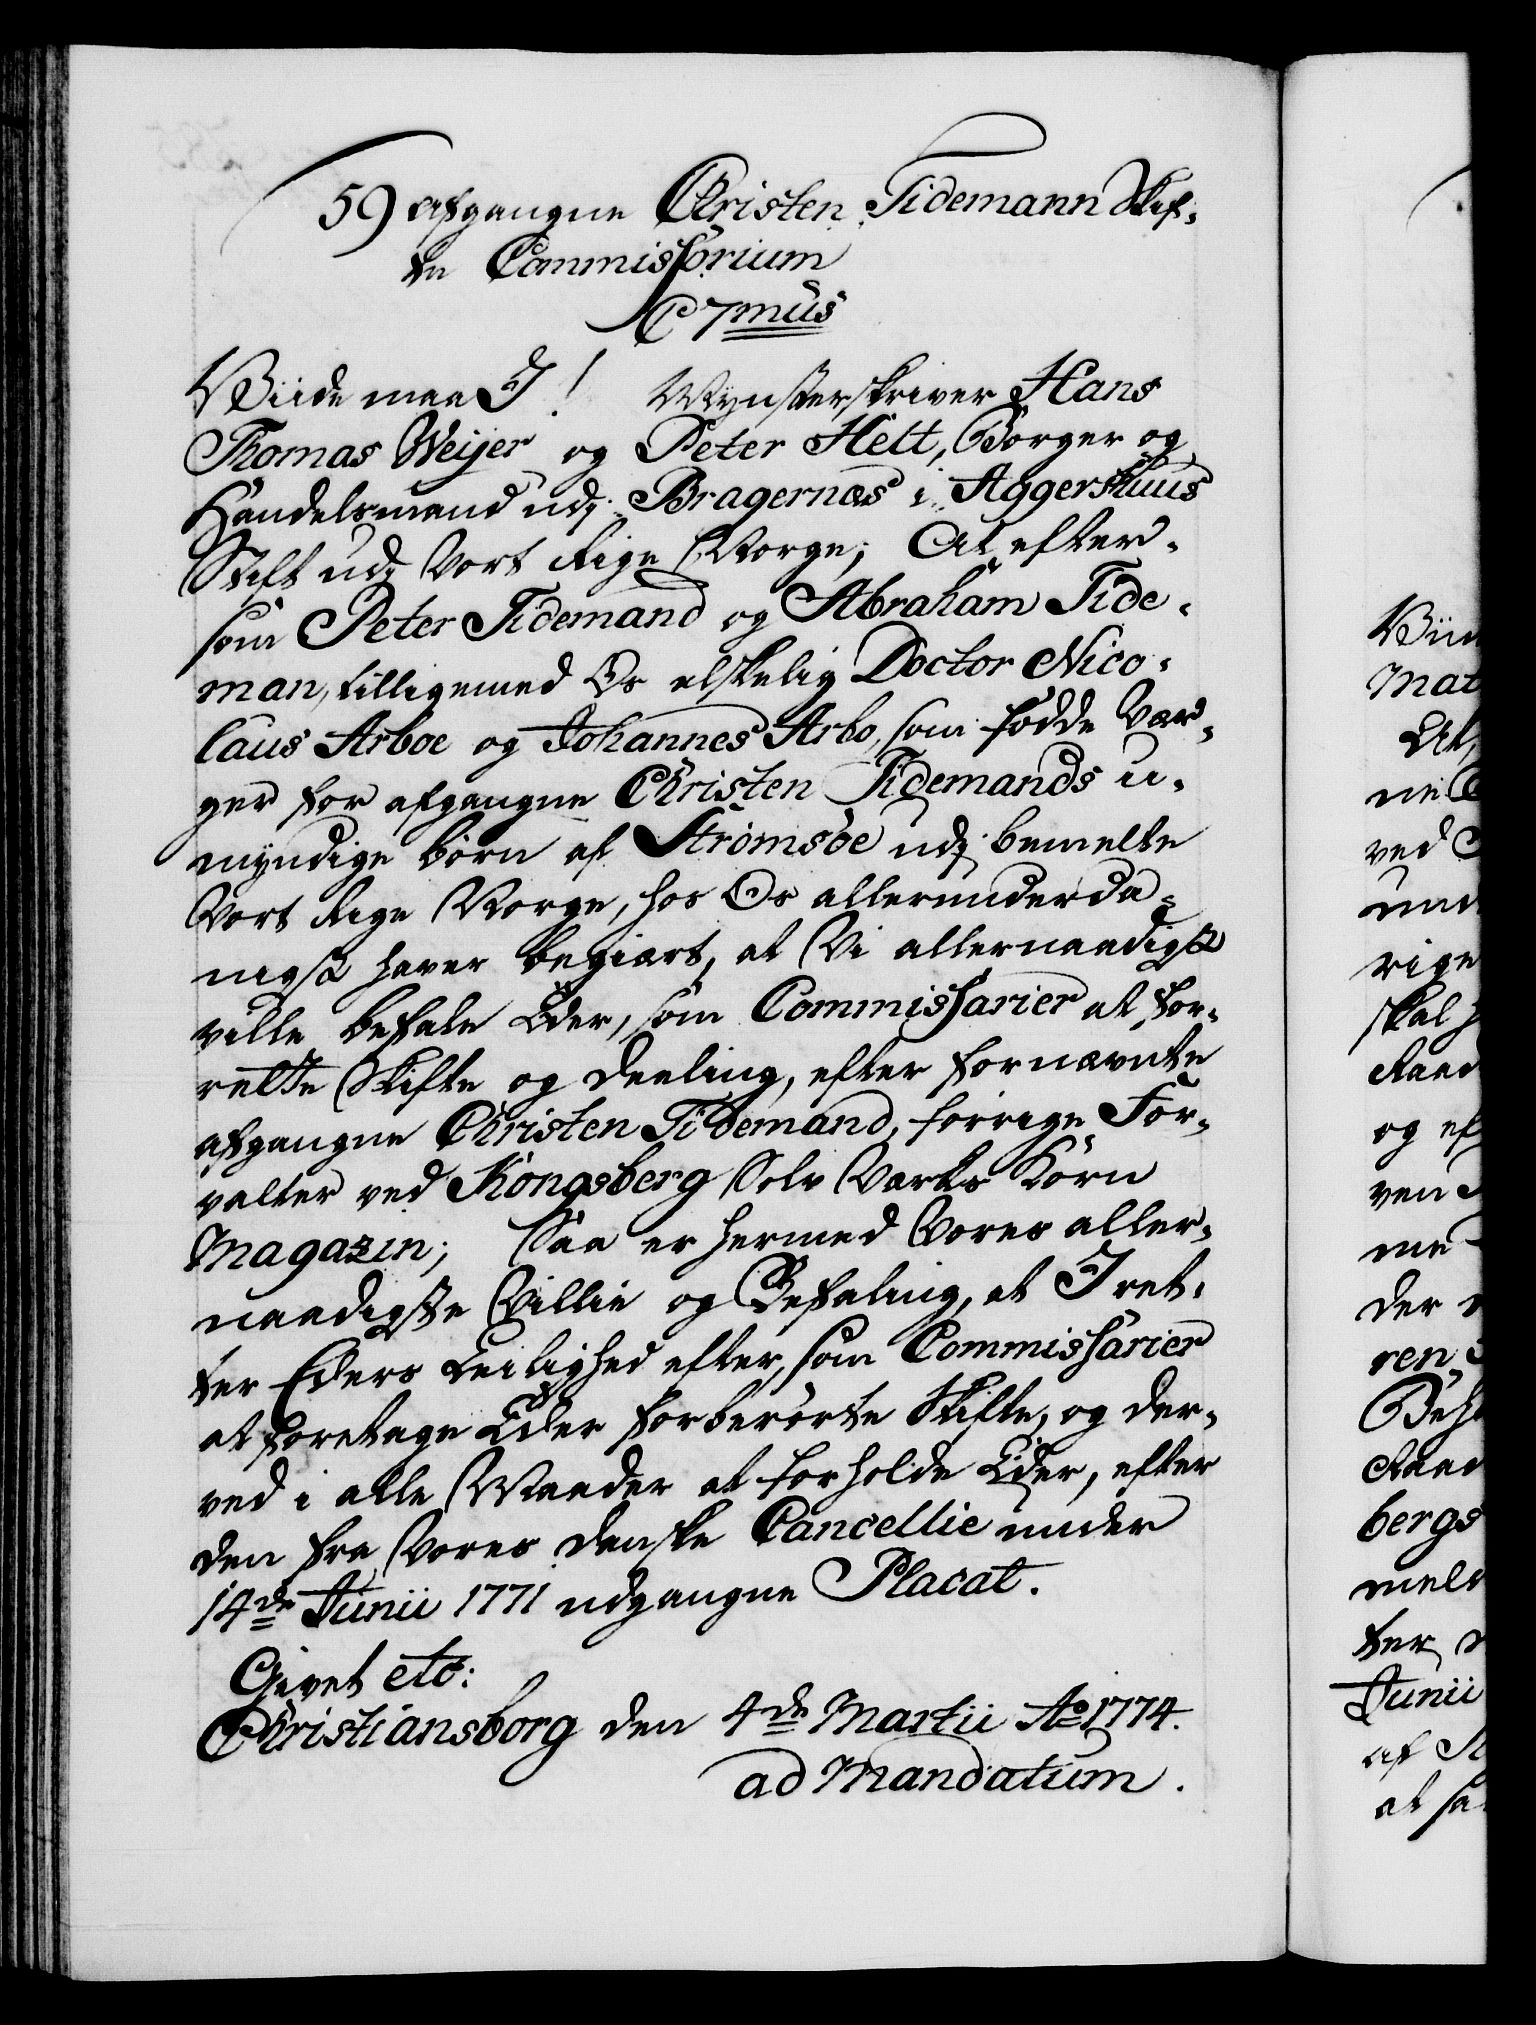 59 Afgangne Christen Tidemann Skif-
te Commissorium
C 7mus
Viide maa I! Mynsterskriver Hans
Thomas Weijer og Peter Hett, Borger og
Handelsmand udj Bragernæs i Aggershuus
Stift udj Vort Rige Norge; At efter-
som Peter Tidemand og Abraham Tide-
man, tilligemed Os elskelig Doctor Nico-
laus Arboe og Johannes Arbo, som födde Vær-
ger for afgangne Christen Tidemands u-
myndige börn af Strømsöe udj bemelte
Vort Rige Norge, hos Os allerunderda-
nigst haver begiært, at Vi allernaadigst
ville befale Eder, som Commissarier at for-
rette Skifte og Deeling, efter fornævnte
afgangne Christen Tidemand, forrige For-
valter ved Kongsberg Sölv Værks Korn
Magazin; Saa er hermed Vores aller-
naadigste Villie og Befaling, at I ret-
ter Eders Leilighed efter, som Commissarier
at foretage Eder forberörte Skifte, og der-
ved i alle Maader at forholde Eder, efter
den fra Vores danske Cancellie under
14de Junii 1771 udgangne Placat.
Givet etc:
Christiansborg den 4de Martii Ao 1774.
ad Mandatum.